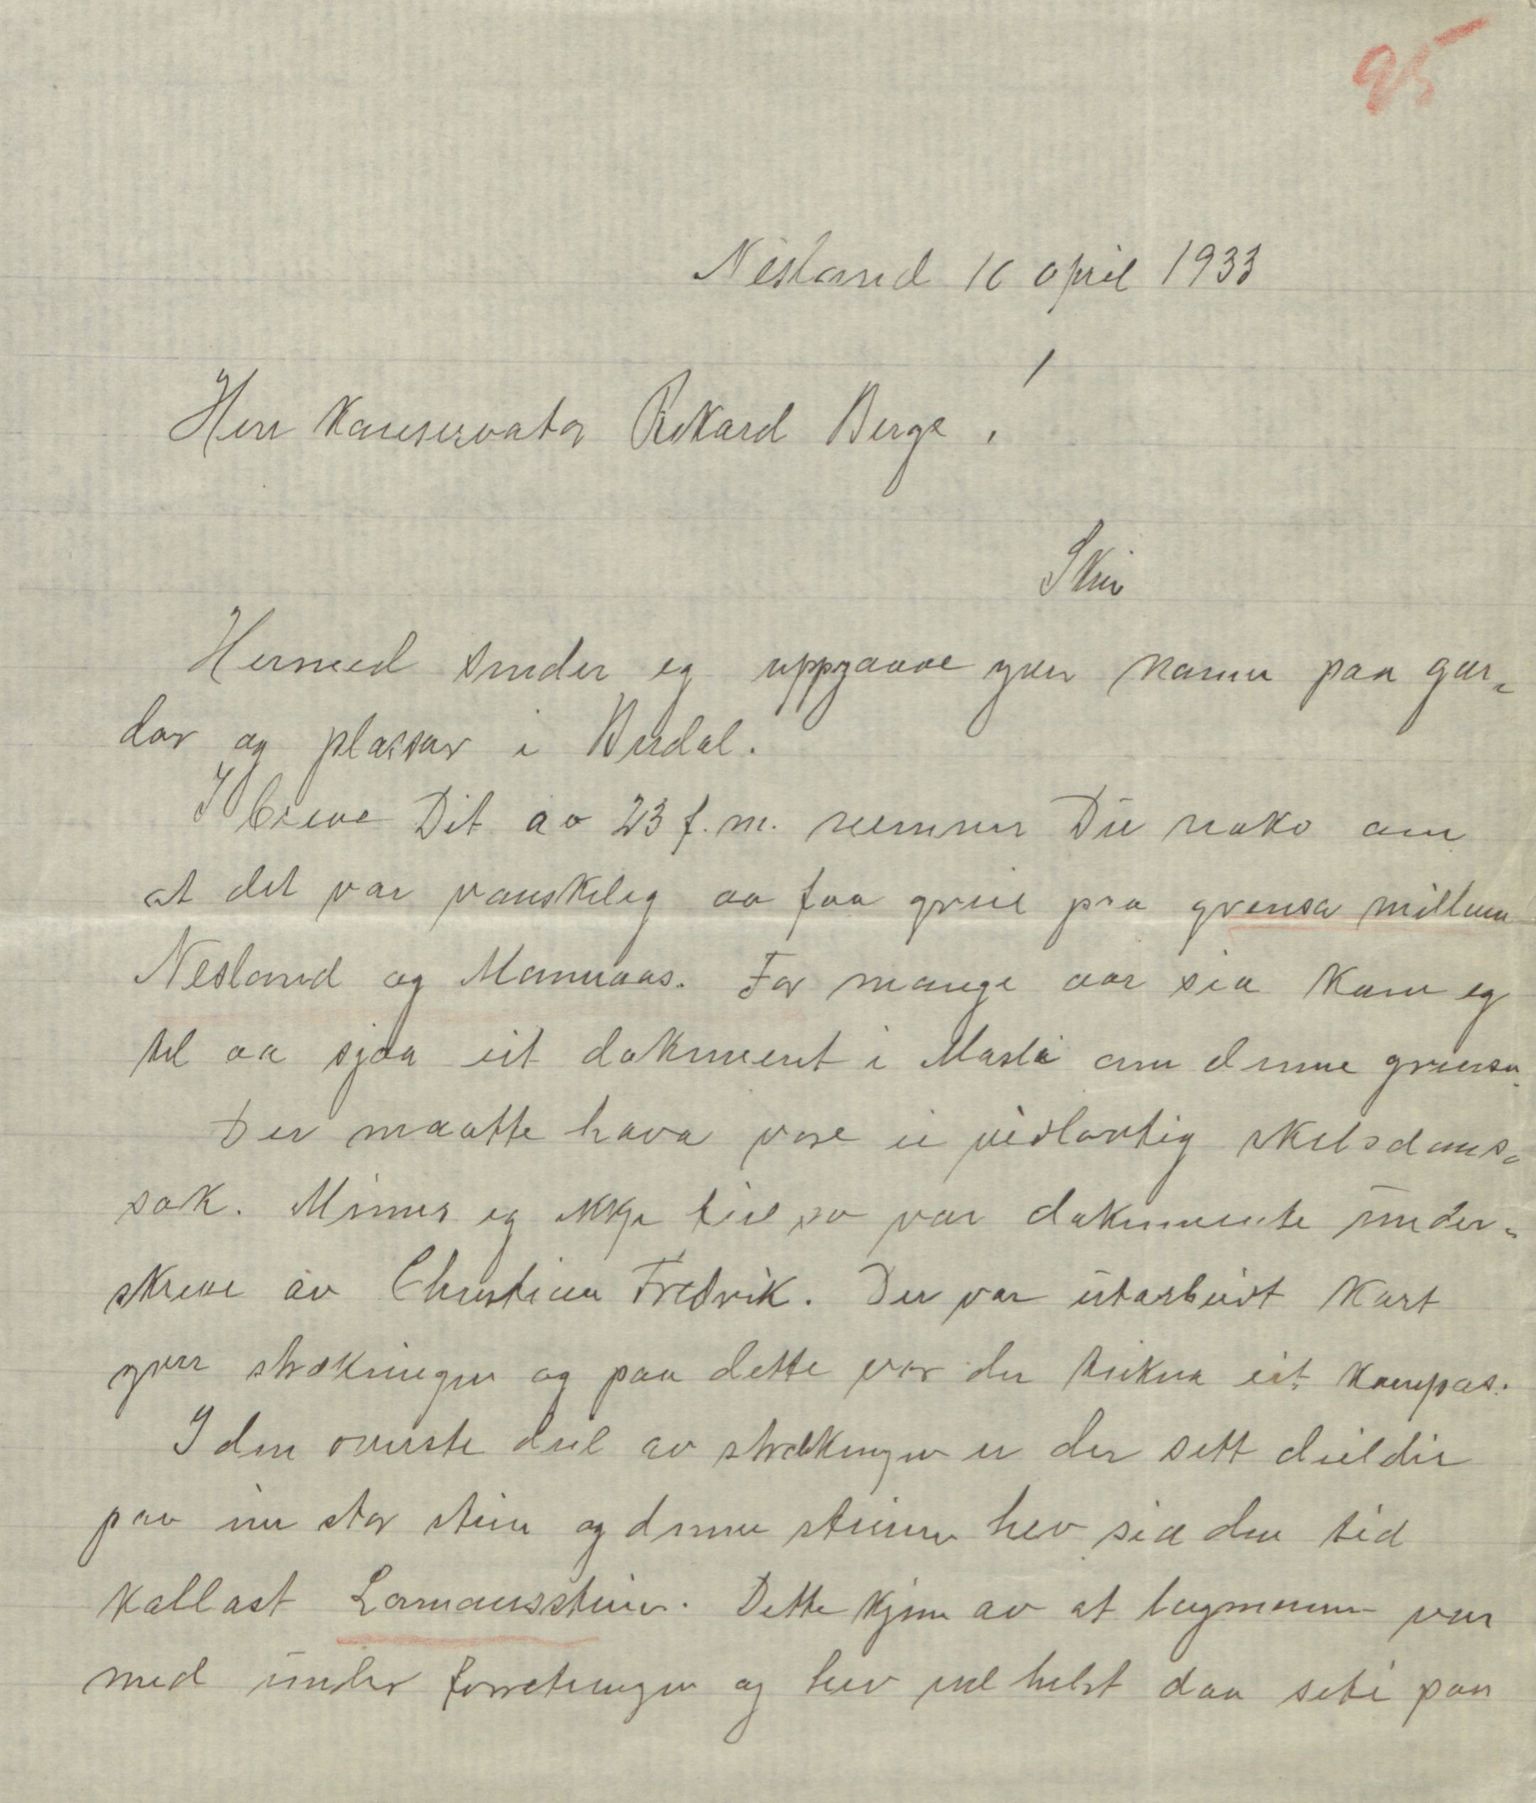 95
Nesland 16 april 1933
Herr Konservator Rikard Berge.
Skien
Hermed sender eg uppgaave yver namn paa gar-
dar og plassar i
I breve Dit av 23 f.m. nemner Du noko om
at det var vanskeleg aa faa greie paa grensa millom
Nesland og Mannaas. For mange aar sia kom eg
til aa sjaa eit dokument i om denne grensa.
Der maatte hava vore ei vidløftig skilsdoms-
sak. Minnes eg ikkje feil so var dokumente under-
skreve av Christian Fredrik. Der var utarbeidt kart
yver strækningen og paa dette var der teikna eit kompas.
I den øverste deel av strækningen er der sett deildir
paa ein stor stein og denne steinen hev sia den tid
kallast Lomannssteinen. Dette kjem av at lagmannen var
med under forretningen og hev vel helst daa seti paa